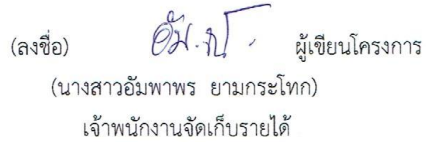 (ลงชื่อ) ผู้เขียนโครงการ
(นางสาวอัมพาพร ยามกระโทก)
เจ้าพนักงานจัดเก็บรายได้